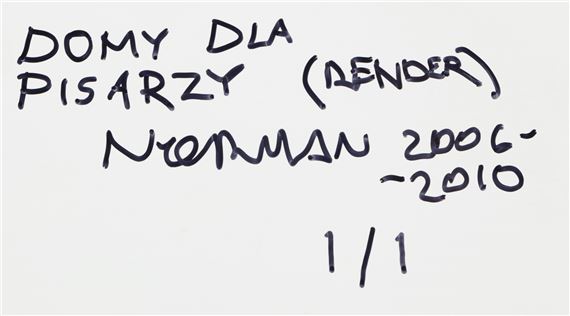 DOMY DLA
PISARZY (RENDER)
NORMAN 2006-
-2010
1/1